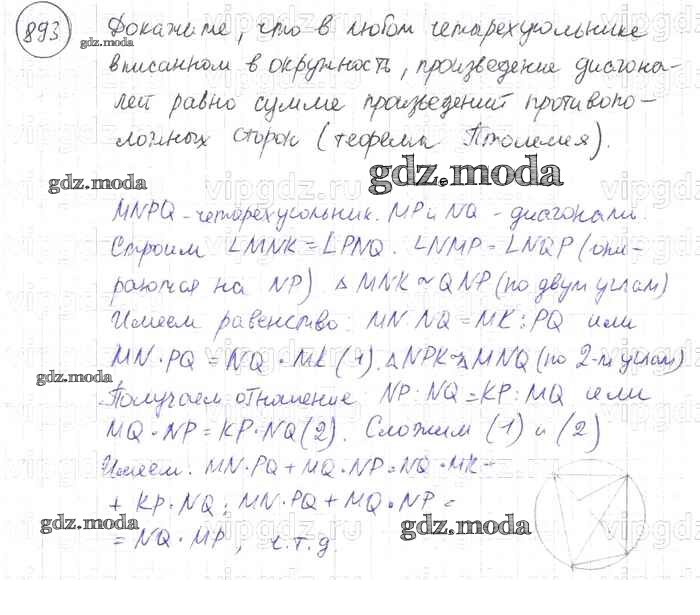 893 Докажите, что в любом четырехугольнике
gdz.moda
вписанном в окружность, произведение диагона-
лей равно сумме произведений противопо-
ложных сторон (теорема Птолемея).
gdz.moda
gdz.moda
MNPQ - четырехугольник. MP и NQ - диагонали.
Строим ∠MNK = ∠PNQ. ∠NMP = ∠NQP (опи-
раются на NP) △ MNK ~ QNP (по двум углам)
Имеем равенство: MN:NQ = MK:PQ или
MN·PQ = NQ·MK (1). △NPK ~ △MNQ (по 2-м углам)
gdz.moda
Получаем отношение NP:NQ = KP:MQ или
MQ·NP = KP·NQ (2). Сложим (1) и (2)
Имеем: MN·PQ + MQ·NP = NQ·MK +
+ KP·NQ; MN·PQ + MQ·NP =
gdz.moda
gdz.moda
= NQ·MP, ч.т.д.